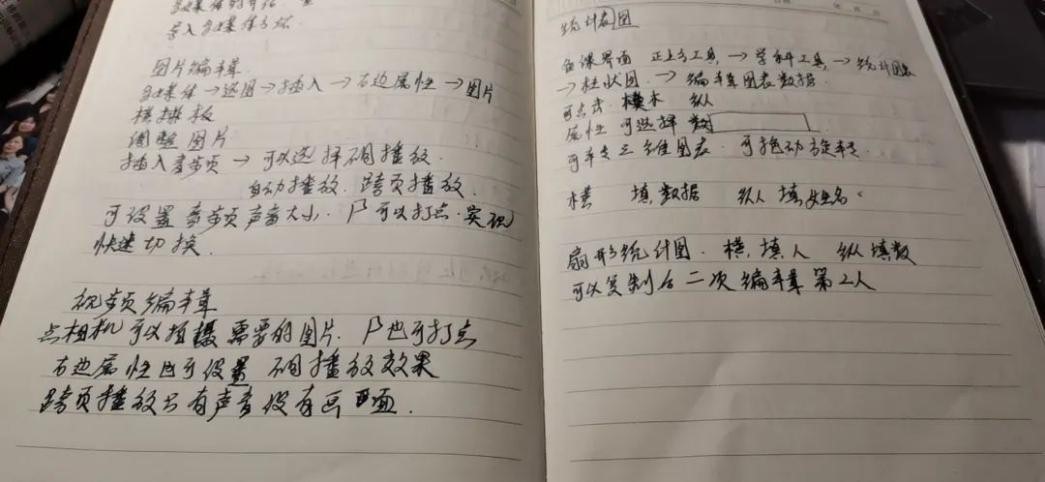 导入多媒体
图片编辑
多媒体→逐图→插入→右边属性→图片
模糊板
调整图片
插入音频→可以选择碉播放.
自动播放.跨页播放.
可设置音频声音大小.尸可以打点.实现
快速切换.
视频编辑
点相机可以拍摄需要的图片.尸也可打点
右边属性也可设置 碉播放效果
跨页播放只有声音没有画面.
统计图
备课界面 正上方工具,→学科工具,→统计图表
→柱状图.→编辑图表数据.
可点击 横 纵
属性 可选择数
可转三维图表.可拖动旋转.
横 填数据 纵 填姓名
扇形统计图.横填人 纵填数
可以复制后二次编辑第2人